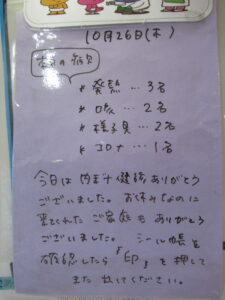 10月26日(木)
本日の病欠
* 発熱…3名
* 咳…2名
* 様子見…2名
* コロナ…1名
今日は内科健診ありがとう
ございました。お休みなのに
来てくれたご家庭もありがとう
ございました。シール帳を
確認したら「印」を押して
また 出してください。